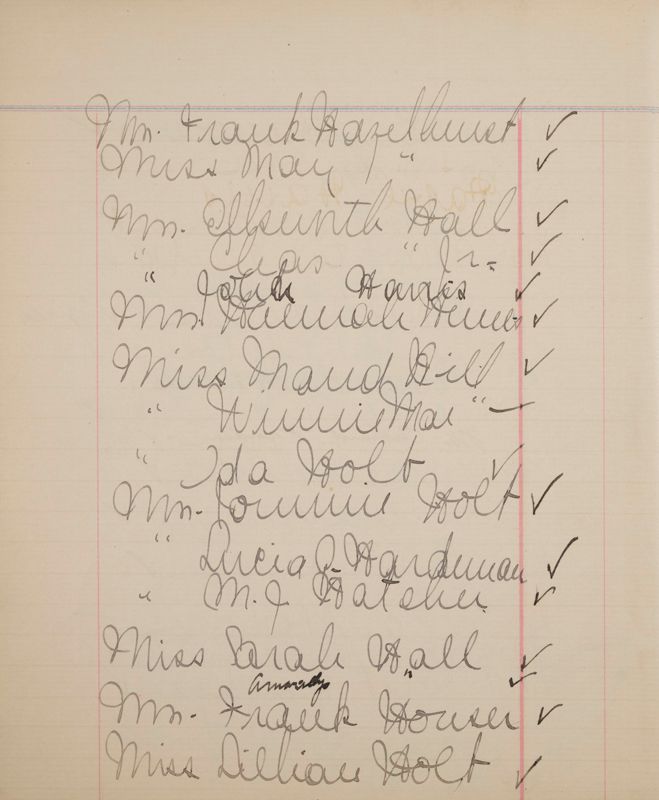 Mrs. Frank Hazelhurst ✓
Miss May " ✓
Mrs. Ellsworth Hall ✓
" Chas " Jr. ✓
" John Harris ✓
Mrs. Hannah Hines ✓
Miss Maud Hill ✓
" Winnie Mae " —
" Ida Holt ✓
Mrs. Tommie Holt ✓
" Lucia J. Hardeman ✓
" M. J. Hatcher ✓
Miss Sarah Hall ✓
" ✓
Mrs. Frank Houser ✓
Miss Lillian Holt ✓